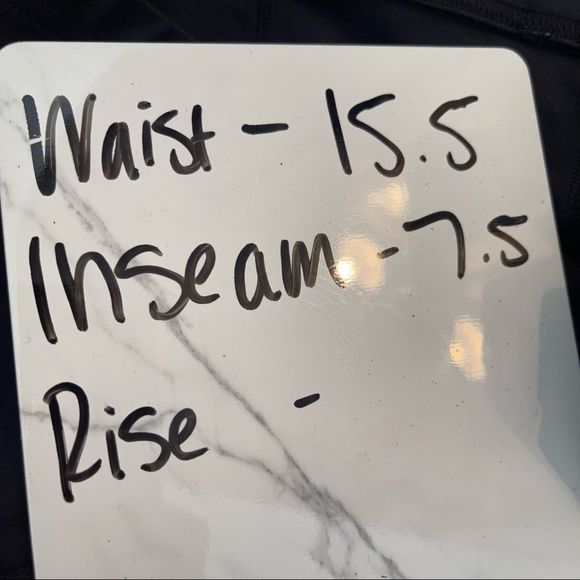 Waist - 15.5
Inseam - 7.5
Rise -